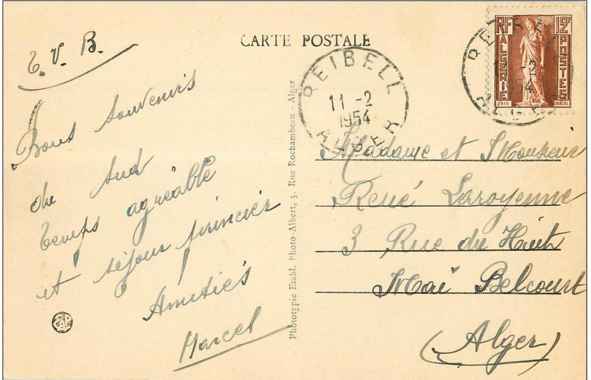 T. V. B.
CARTE POSTALE
Bons souvenirs
du sud
temps agréable
et séjour princier
Amitiés
Marcel
Phototypie Établ. Photo-Albert, 3, Rue Rochambeau - Alger
REIBELL
11 -2
1954
ALGER
RF
15F
ALGERIE
POSTES
Madame et Monsieur
René Laroyenne
3 Rue du Huit
Mai Belcourt
(Alger)